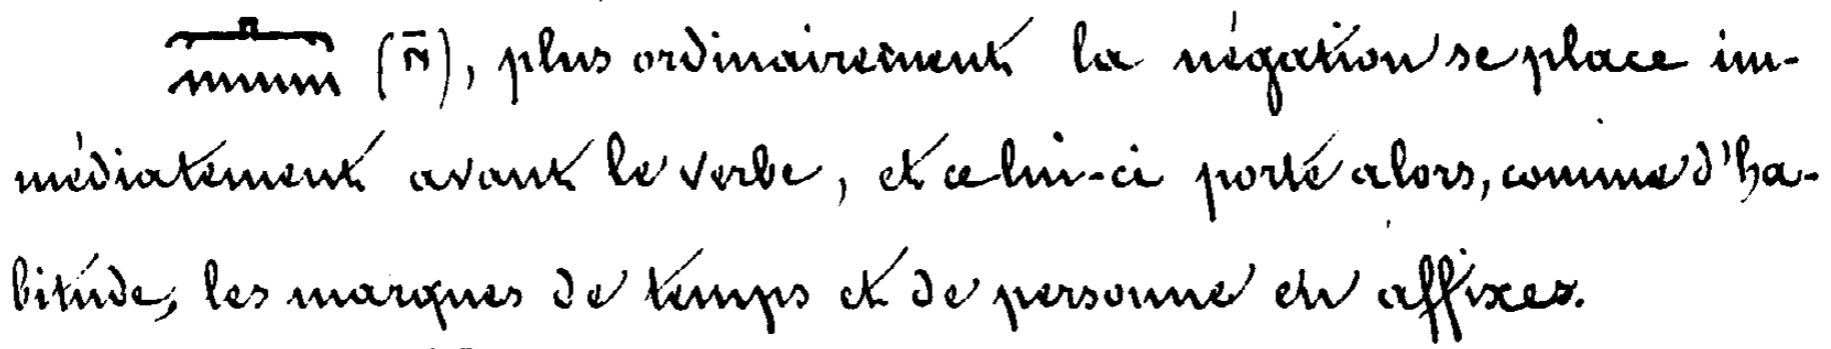 𓂜𓈖 (ⲛ̄), plus ordinairement la négation se place im-
médiatement avant le verbe, et celui-ci porte alors, comme d'ha-
bitude, les marques de temps et de personne en affixes.